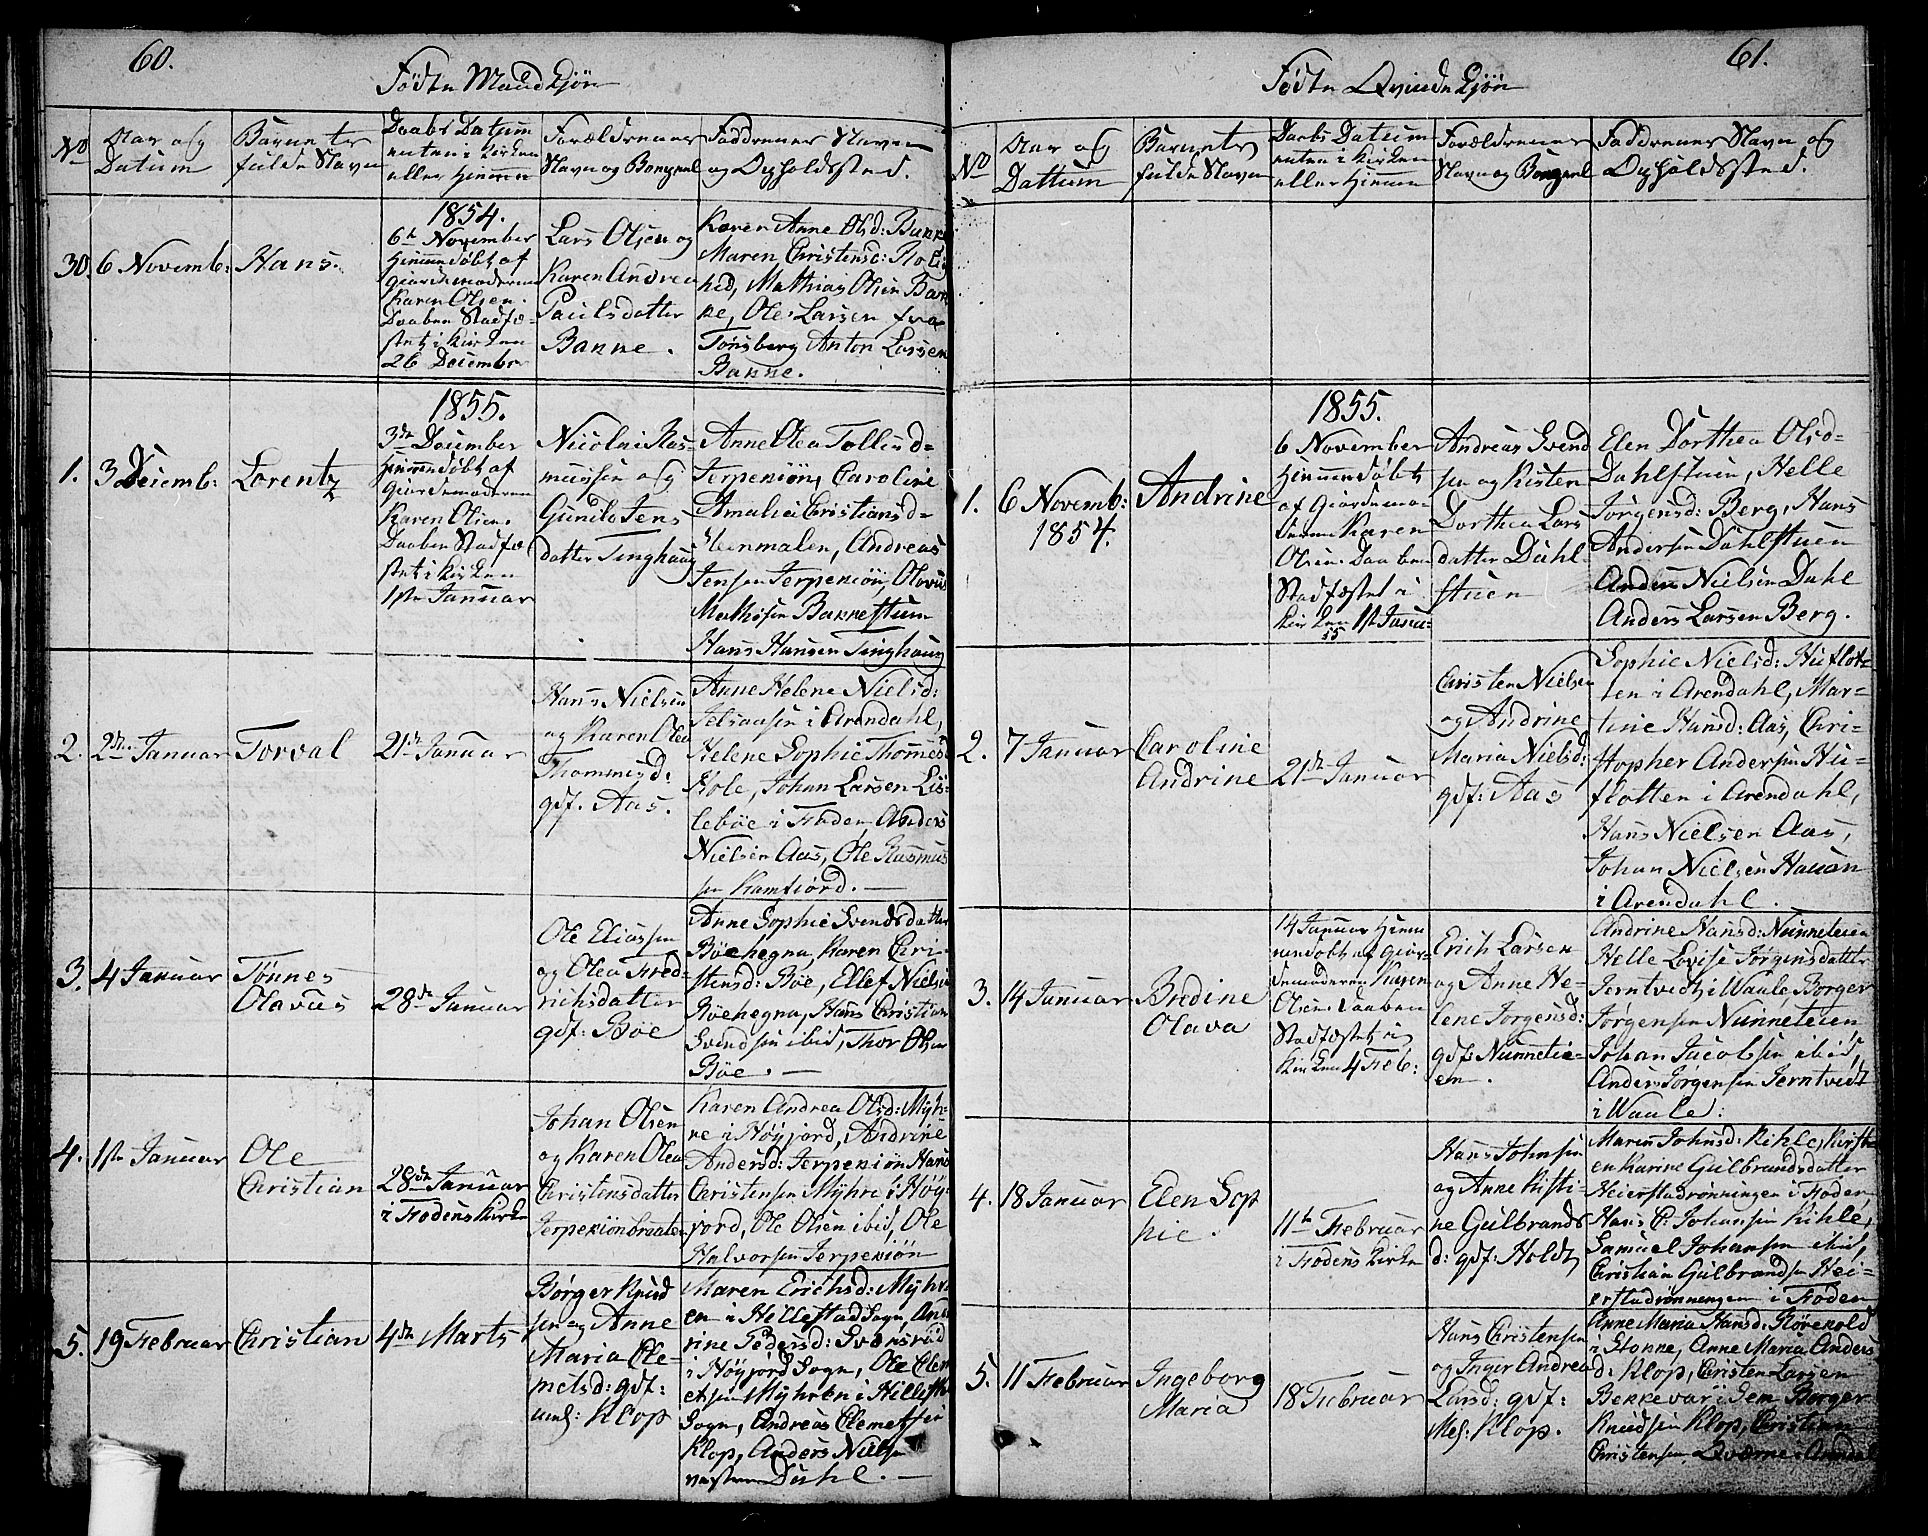 60.
Fødte Mandkjøn
No
Aar og
Datum
Barnets
fulde Navn
Daabs Datum
enten i Kirken
eller hjemme
Forældrenes
Navn og Bopæl
Faddrenes Navn
og Opholdssted.
30.
6 Novemb:
Hans.
1854.
6te November
hjemmedøbt af
Giordemoderen
Karen Olsen.
Daaben Stadfæ-
stet i Kirken
26 December
Lars Olsen og
Karen Andrea
Paulsdatter
Bakke.
Karen Anne Olsd: Bakke
Maren Christensd:
Mathias Olsen Bak
ke, Ole Larsen fra
Tønsberg Anton Larsen
Bakke.
1.
3 Decemb:
Lorentz
1855.
3de December
hjemmedøbt af
Giordemoderen
Karen Olsen.
Daaben Stadfæ
stet i Kirken
1ste Januar
Nicolai Ras-
mussen og
Gunild Jens
datter Tinghaug
Anne Olea Tollefsd-
Jerpekiøn, Caroline
Amalia Christiansd-
Steinmalen, Andreas
Jensen Jerpekiøn, Olavus
Mathisen Bakkestuen
Hans Hansen Tinghaug
2.
2den Januar
Torval
21de Januar
Hans Nielsen
og Karen Olea
Thommesd:
gdf. Aas.
Anne Helene Nielsd:
i Arendahl,
Helene Sophie Thomesd
Kole, Johan Larsen Lis-
lebøe i Foden, Anders
Nielsen Aas, Ole Rasmus
sen Kamfjord. —
3.
4 Januar
Tønnes
Olavus
28de Januar
Ole Eliassen
og Olea Fred-
richsdatter
gdf: Bøe
Anne Sophie Svendsdatter
Bøehegna, Karen Chri-
stensd: Bøe, Ellef Nielsen
Bøehegna, Hans Christian
Svendsen ibid, Thor Olsen
Bøe. —
4.
1ste Januar
Ole
Christian
28de Januar
i Fodens Kirke
Johan Olsen
og Karen Olea
Christensdatter
Jerpekiønbraaten
Karen Andrea Olsd: Myh-
re i Høyjord, Andrine
Andersd: Jerpekiøn Hans
Christensen Myhre i Høy-
jord, Ole Olsen ibid, Ole
Halvorsen Jerpekiøn
5.
19 Februar
Christian
4de Marts
Børger Knud
sen og Anne
Maria Cle-
metsd: gdf:
Klop
Maren Erichsd: Myhr
en i Hillestad Sogn, And
rine Pedersd: Svensrød
i Høyjord Sogn, Ole Clem
etsen Myhren i Hillesta
Sogn, Andreas Clemetsen
Klop, Anders Nielsen
Dahl. —
61.
Fødte Qvindekjøn
No
Aar og
Dattum
Barnets
fulde Navn
Daabs Datum
enten i Kirken
eller hjemme
Forældrenes
Navn og Bopæl
Faddrenes Navn og
Opholdssted.
1.
6 Novemb:
1854.
Andrine
1855.
6 November
hjemmedøbt
af Giordemo-
deren Karen
Olsen. Daaben
Stadfæstet i
Kirken 1ste Janu-
55
Andreas Svend
sen og Kisten
Dorthea Lars
datter Dahl-
stuen
Elen Dorthea Olsd-
Dahlstuen, Helle
Jørgensd: Berg, Hans
Andersen Dahlstuen
Anders Nielsen Dahl
Anders Larsen Berg.
2.
7 Januar
Caroline
Andrine
21de Januar
Christen Nielsen
og Andrine
Maria Nielsd:
gdf: Aas
Sophie Nielsd: Huflot-
ten i Arendahl, Mar-
tine Hansd: Aas, Chri-
stopher Andersen Hu-
flotten i Arendahl,
Hans Nielsen Aas,
Johan Nielsen Hauan
i Arendahl.
3.
14 Januar
Bredine
Olava
14 Januar hjem
medøbt af Gior-
demoderen Karen
Olsen. Daaben
Stadfæstet i
Kirken 4 Feb:
Erich Larsen
og Anne He-
lene Jørgensd:
gdf: Nunnetei-
en.
Andrine Hansd: Nunneteien
Helle Lovise Jørgensdatter
Jerntvedt i Waale, Børger
Jørgensen Nunneteien
Johan Jacobsen ibid,
Anders Jørgensen Jerntvedt
i Waale.
4.
18 Januar
Elen Sop
hie.
11te Februar
i Fodens Kirke
Hans Johnsen
og Anne Kisti-
ne Gulbrands
d: gdf: Holdt
Maren Johnsd: Kihle, Kirsti
en Karine Gulbrandsdatter
Heierstadrønningen i Foden
Hans C. Johansen Kihle,
Samuel Johansen ibid,
Christian Gulbrandsen Hei-
erstadrønningen i Foden
5.
11 Februar
Ingeborg
Maria
18 Februar
Hans Christensen
og Inger Andrea
Larsd: gdf:
Mes: Klop.
Anne Maria Hansd: Rørekold
i Stokke, Anne Maria Anders
d: Klop, Christen Larsen
Bekkevar i Sem Børger
Knudsen Klop, Christian
Christensen, Qværne i Arendal